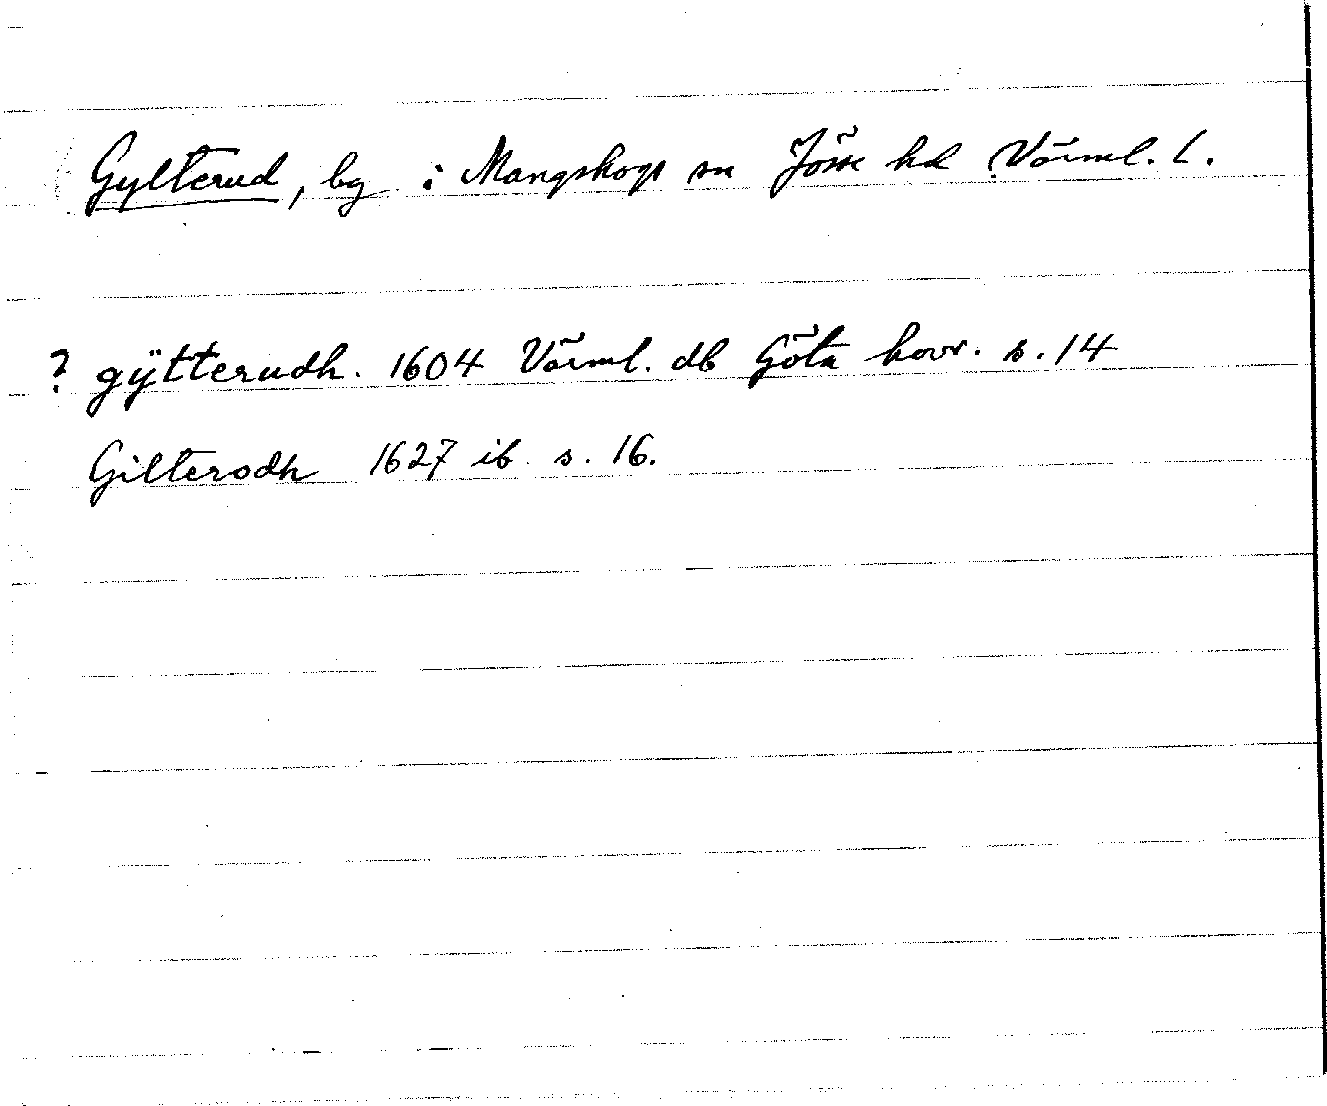 Gylterud, by i Mangskogs sn Jösse hd Värml. l.
? gÿtterudh. 1604 Värml. db Göta hovr. s. 14
Gilterodh 1627 ib s. 16.